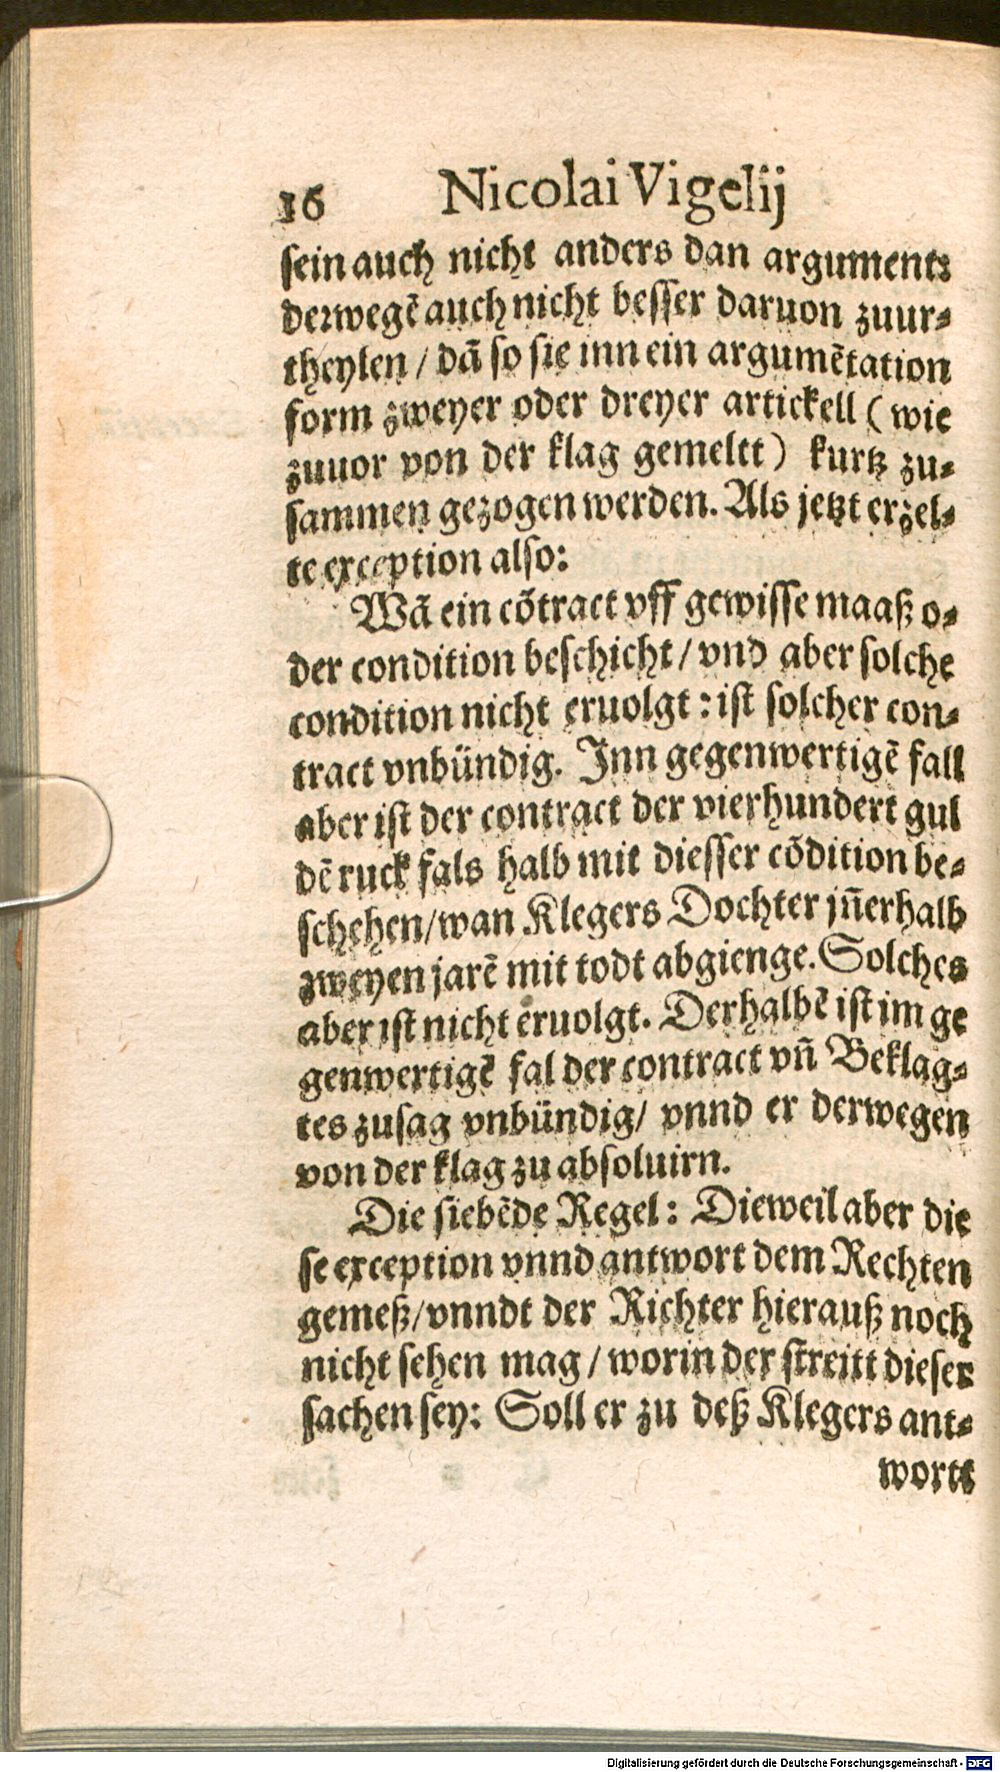 16 Nicolai Vigelij
sein auch nicht anders dan arguments
derwegẽ auch nicht besser daruon zuur-
theylen / dã so sie inn ein argumẽtation
form zweyer oder dreyer artickell (wie
zuuor von der klag gemeltt) kurtz zu-
sammen gezogen werden. Als jetzt erzel-
te exception also:
Wã ein cõtract vff gewisse maaß o-
der condition beschicht / vnd aber solche
condition nicht eruolgt : ist solcher con-
tract vnbündig. Inn gegenwertigẽ fall
aber ist der contract der vierhundert gul
dẽ ruck fals halb mit diesser cõdition be-
schehen/wan Klegers Dochter jñerhalb
zweyen jarẽ mit todt abgienge. Solches
aber ist nicht eruolgt. Derhalbẽ ist im ge
genwertigẽ fal der contract vñ Beklag-
tes zusag vnbündig/ vnnd er derwegen
von der klag zu absoluirn.
Die siebẽde Regel: Dieweil aber die
se exception vnnd antwort dem Rechten
gemeß/vnndt der Richter hierauß noch
nicht sehen mag / worin der streitt dieser
sachen sey: Soll er zu deß Klegers ant-
wortt
Digitalisierung gefördert durch die Deutsche Forschungsgemeinschaft - DFG